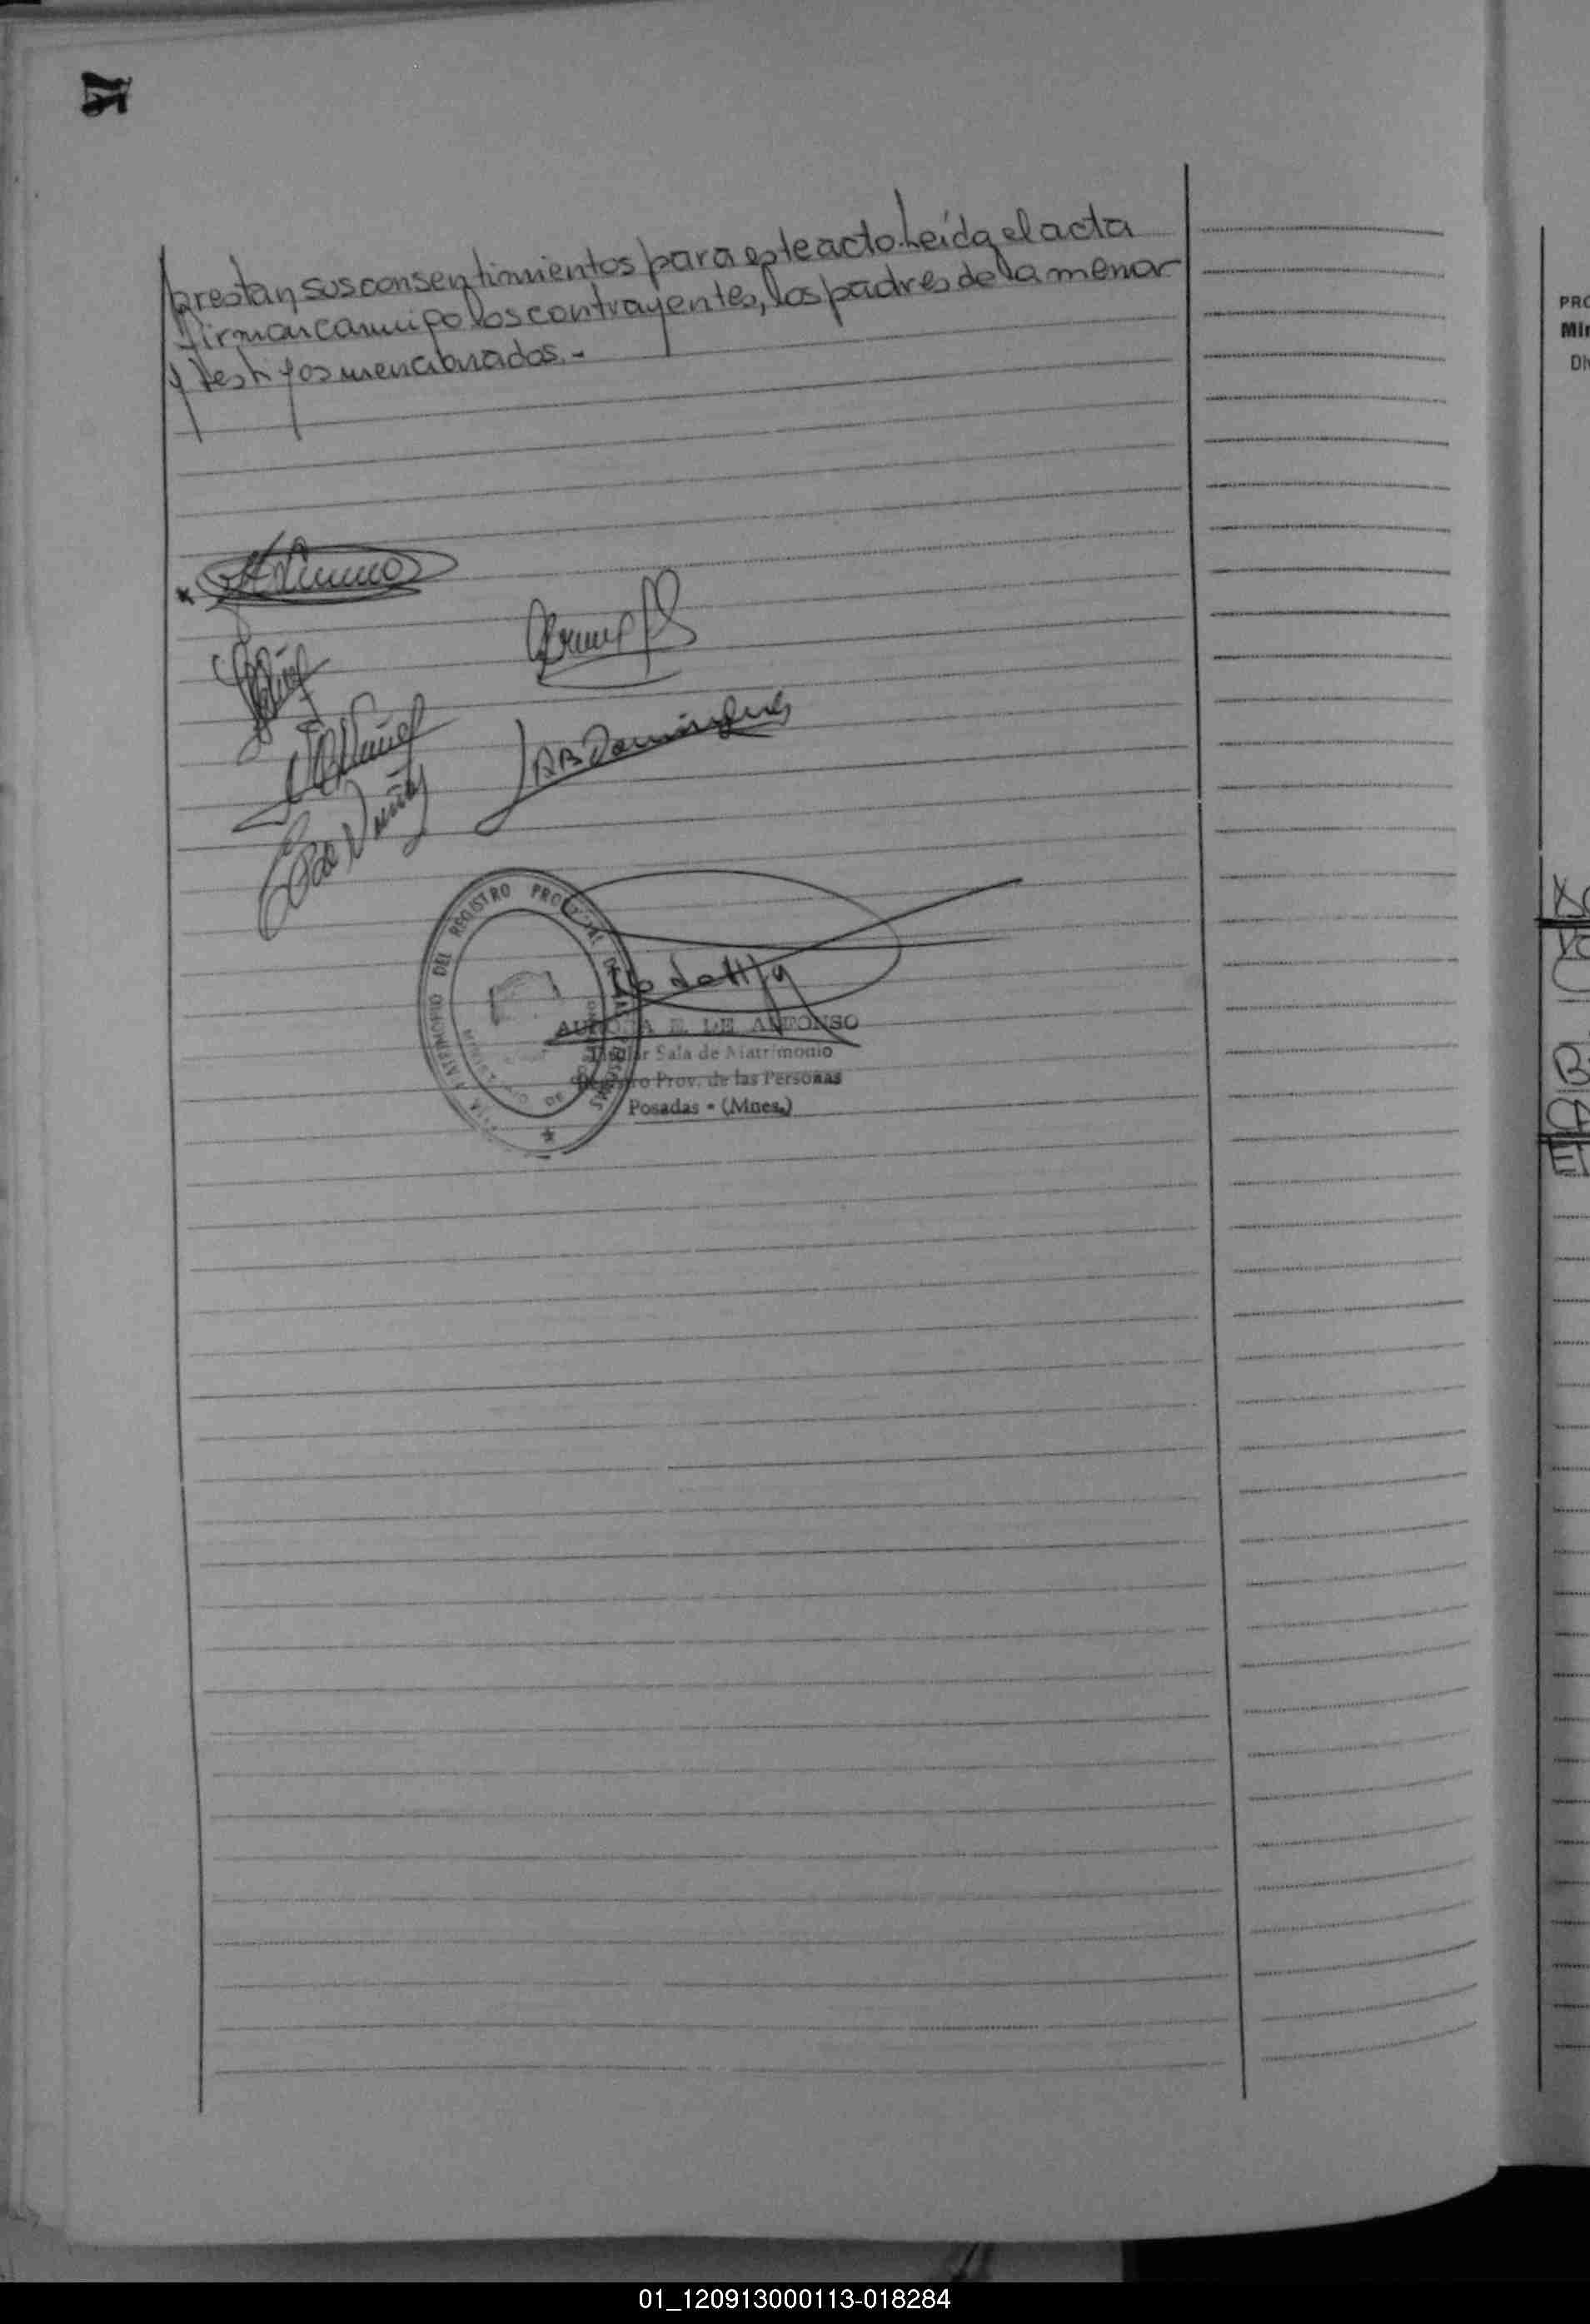 prestan sus consentimientos para este acto. Leída el acta
firman conmigo los contrayentes, los padres de la menor
y testigos mencionados.-
Nuñez
E. de Nuñez
DEL REGISTRO PROVINCIAL DE LAS PERSONAS
MATRIMONIO
MINISTERIO DE GOBIERNO
AURORA E. DE ALFONSO
Titular Sala de Matrimonio
Registro Prov. de las Personas
Posadas - (Mnes.)
PRO
Min
Di
01_120913000113-018284